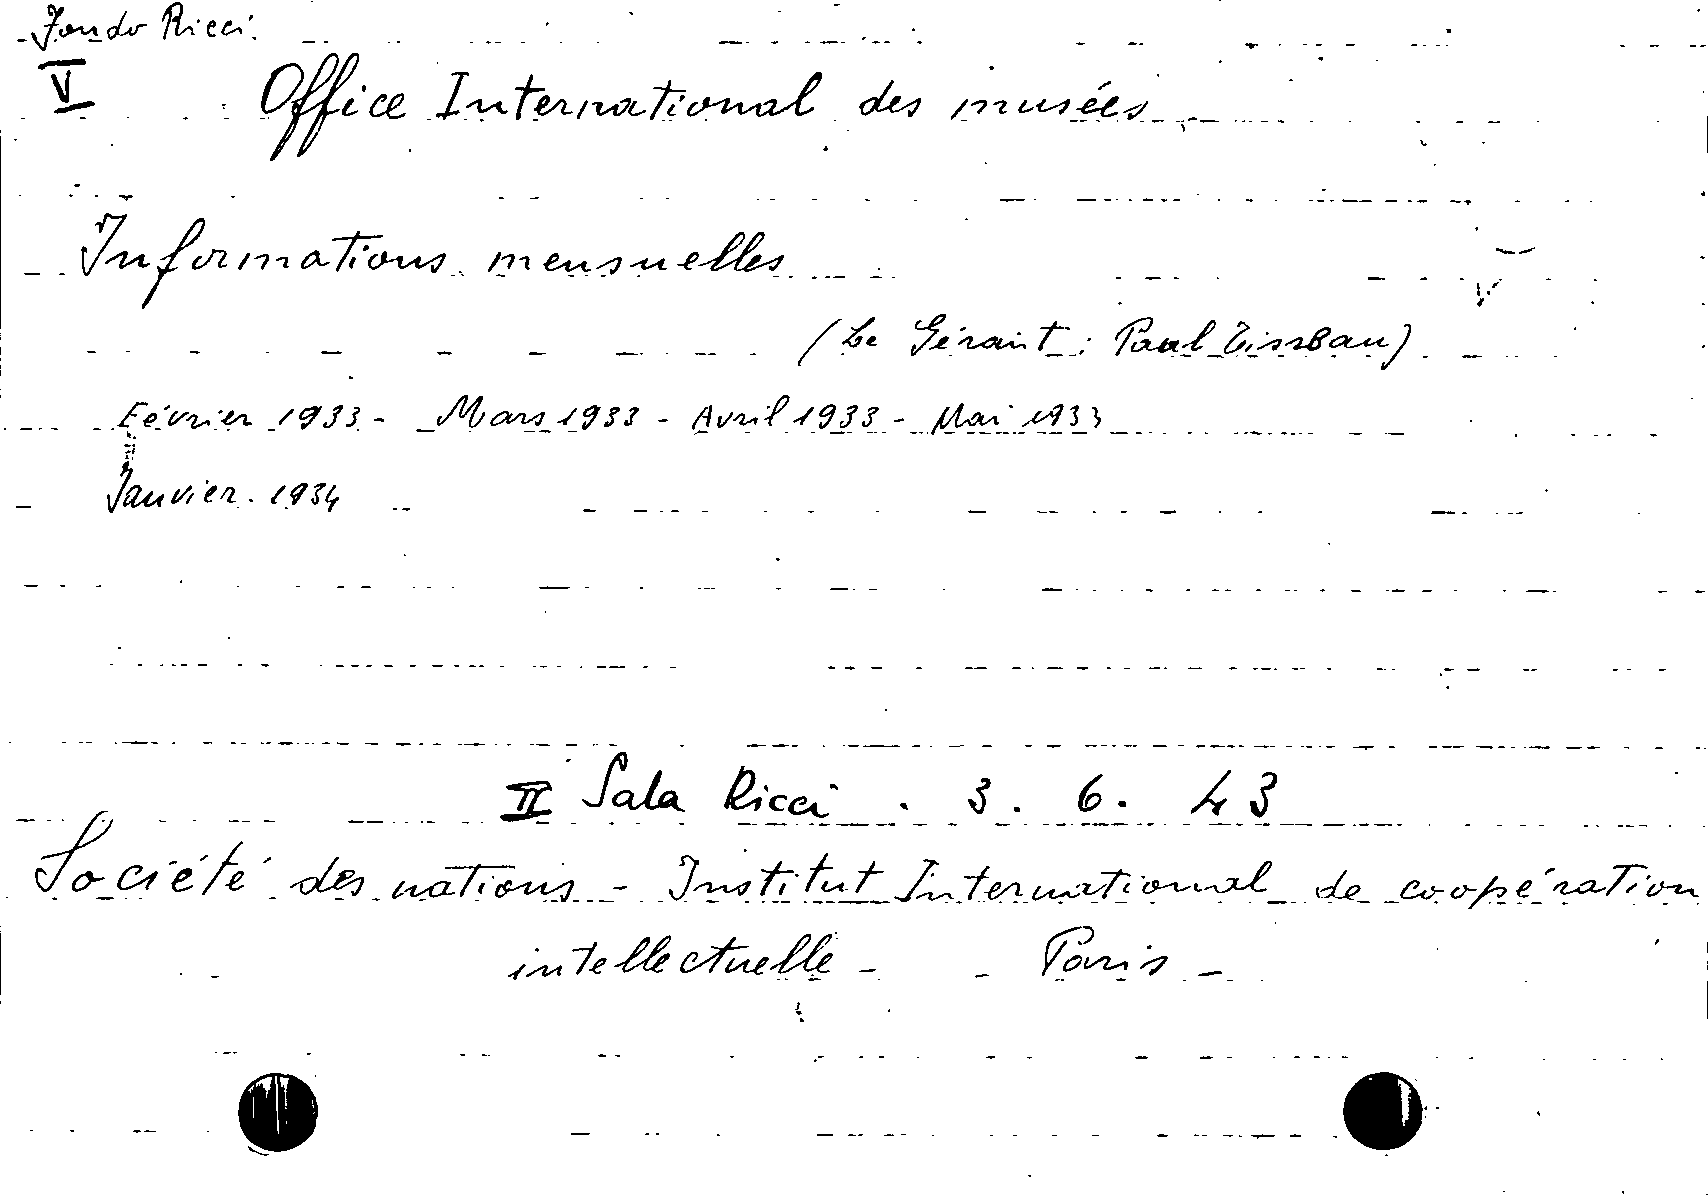 Fondo Ricci
V
Office International des musées
Informations mensuelles
(Le Gérant: Paul Tisseau)
Février 1933 - Mars 1933 - Avril 1933 - Mai 1933
Janvier. 1934
II Sala Ricci . 3. 6. 43
Société des nations - Institut International de coopération
intellectuelle - - Paris -